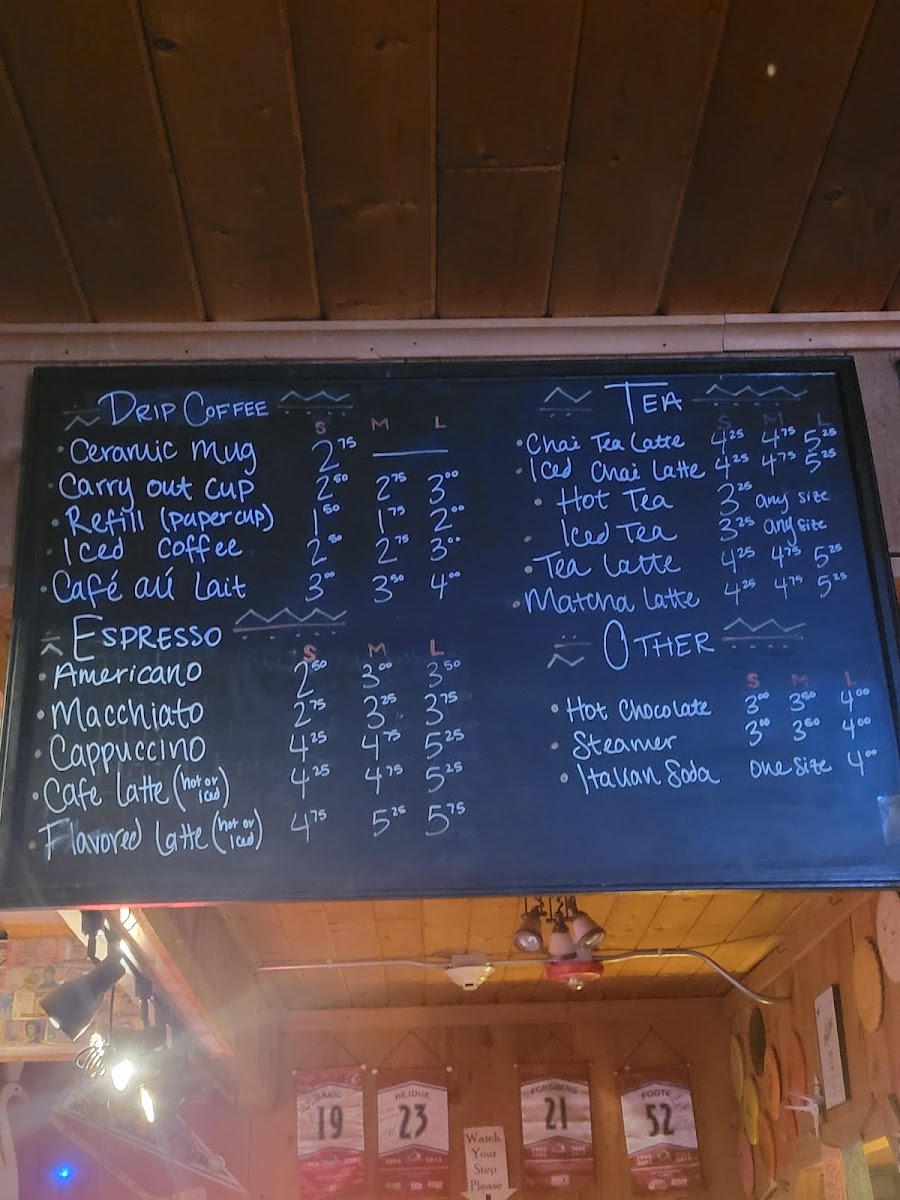 DRIP COFFEE
S M L
• Ceramic mug 2 75
• Carry out cup 2 50 2 75 3 00
• Refill (paper cup) 1 50 1 75 2 00
• Iced coffee 2 50 2 75 3 00
• Café aú Lait 3 00 3 50 4 00
ESPRESSO
S M L
• Americano 2 50 3 00 3 50
• Macchiato 2 75 3 25 3 75
• Cappuccino 4 25 4 75 5 25
• Cafe Latte (hot or iced) 4 25 4 75 5 25
• Flavored Latte (hot or iced) 4 75 5 25 5 75
TEA
S M L
• Chai Tea Latte 4 25 4 75 5 25
• Iced Chai Latte 4 25 4 75 5 25
• Hot Tea 3 25 any size
• Iced Tea 3 25 any size
• Tea Latte 4 25 4 75 5 25
• Matcha Latte 4 25 4 75 5 25
OTHER
S M L
• Hot Chocolate 3 00 3 50 4 00
• Steamer 3 00 3 50 4 00
• Italian Soda one size 4 00
SAKIC
19
HEJDUK
23
FORSBERG
21
FOOTE
52
Watch
Your
Step
Please